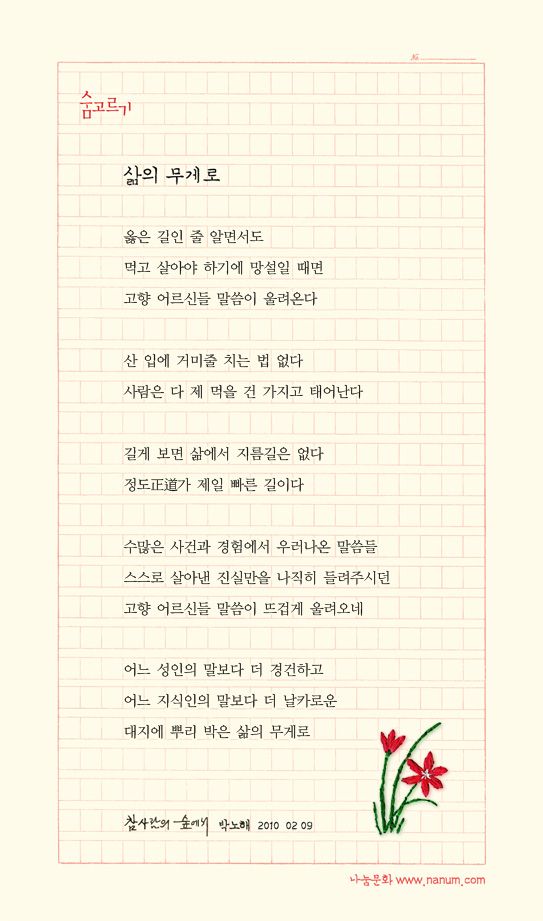 №
숨고르기
삶의 무게로
옳은 길인 줄 알면서도
먹고 살아야 하기에 망설일 때면
고향 어르신들 말씀이 울려온다
산 입에 거미줄 치는 법 없다
사람은 다 제 먹을 건 가지고 태어난다
길게 보면 삶에서 지름길은 없다
정도正道가 제일 빠른 길이다
수많은 사건과 경험에서 우러나온 말씀들
스스로 살아낸 진실만을 나직히 들려주시던
고향 어르신들 말씀이 뜨겁게 울려오네
어느 성인의 말보다 더 경건하고
어느 지식인의 말보다 더 날카로운
대지에 뿌리 박은 삶의 무게로
참사람의 숲에서 박노해 2010 02 09
나눔문화 www.nanum.com